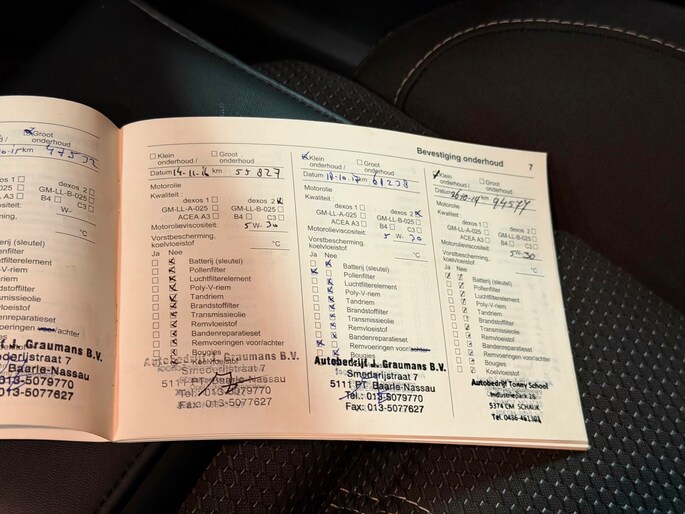 Bevestiging onderhoud 7
Groot
onderhoud
km 47532
dexos 2
GM-LL-B-025
B4 C3
W-
°C
Autobedrijf J. Graumans B.V.
Smederijstraat 7
Baarle-Nassau
013-5079770
013-5077627
Klein onderhoud / Groot onderhoud
Datum 14-11-16 km 55827
Motorolie
Kwaliteit:
dexos 1 dexos 2
GM-LL-A-025 GM-LL-B-025
ACEA A3 B4 C3
Motorolieviscositeit: 5 W- 30
Vorstbescherming,
koelvloeistof °C
Ja Nee
Batterij (sleutel)
Pollenfilter
Luchtfilterelement
Poly-V-riem
Tandriem
Brandstoffilter
Transmissieolie
Remvloeistof
Bandenreparatieset
Remvoeringen voor/achter
Bougies
Koelvloeistof
Autobedrijf J. Graumans B.V.
Smederijstraat 7
5111 PT Baarle-Nassau
Tel.: 013-5079770
Fax: 013-5077627
Klein onderhoud / Groot onderhoud
Datum 18-10-17 km 61238
Motorolie
Kwaliteit:
dexos 1 dexos 2
GM-LL-A-025 GM-LL-B-025
ACEA A3 B4 C3
Motorolieviscositeit: 5 W- 30
Vorstbescherming,
koelvloeistof °C
Ja Nee
Batterij (sleutel)
Pollenfilter
Luchtfilterelement
Poly-V-riem
Tandriem
Brandstoffilter
Transmissieolie
Remvloeistof
Bandenreparatieset
Remvoeringen voor/achter
Bougies
Autobedrijf J. Graumans B.V.
Smederijstraat 7
5111 PT Baarle-Nassau
Tel.: 013-5079770
Fax: 013-5077627
Klein onderhoud / Groot onderhoud
Datum km 94577
Motorolie
Kwaliteit:
dexos 1 dexos 2
GM-LL-A-025 GM-LL-B-025
ACEA A3 B4 C3
Motorolieviscositeit: 5 W- 30
Vorstbescherming,
koelvloeistof °C
Ja Nee
Batterij (sleutel)
Pollenfilter
Luchtfilterelement
Poly-V-riem
Tandriem
Brandstoffilter
Transmissieolie
Remvloeistof
Bandenreparatieset
Remvoeringen voor/achter
Bougies
Koelvloeistof
Autobedrijf Tonny School
Industriepark 26
5374 CM SCHAIJK
Tel. 0486-461301